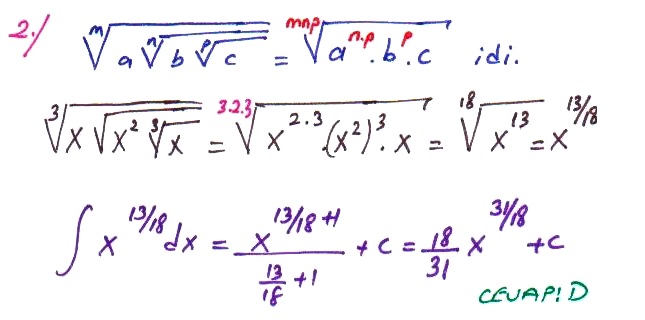 2./ ᵐ√(a ⁿ√(b ᵖ√c)) = ᵐⁿᵖ√(aⁿ·ᵖ.bᵖ.c) idi.
³√(x√(x² ³√x)) = ³·²·³√(x²·³.(x²)³.x) = ¹⁸√(x¹³) = x^13/18
∫ x^13/18 dx = x^(13/18 +1) / (13/18 +1) + c = 18/31 x^31/18 + c
CEVAP! D